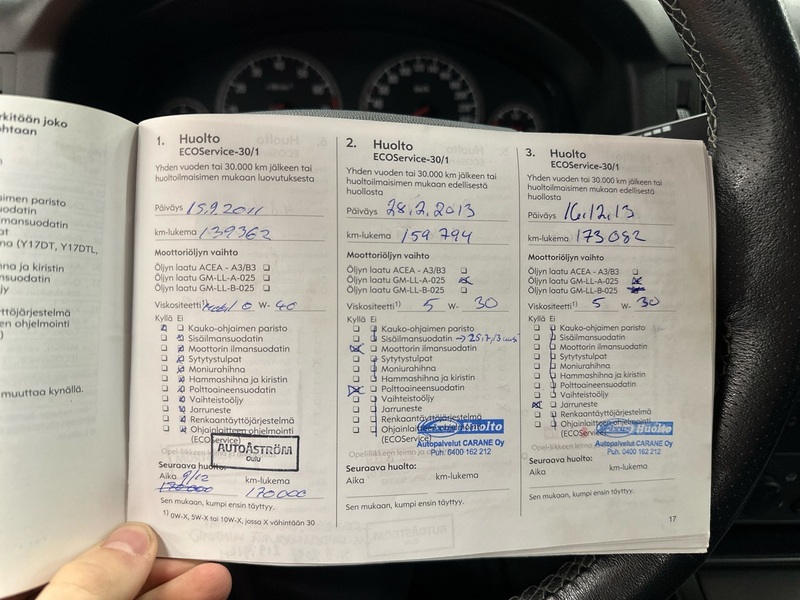 rkitään joko
ohtaan
aimen paristo
uodatin
lmansuodatin
at
na (Y17DT, Y17DTL,
nna ja kiristin
suodatin
jy
yttöjärjestelmä
en ohjelmointi
muuttaa kynällä.
1. Huolto
ECOService-30/1
Yhden vuoden tai 30.000 km jälkeen tai
huoltoilmaisimen mukaan luovutuksesta
Päiväys 15.9.2011
km-lukema 139362
Moottoriöljyn vaihto
Öljyn laatu ACEA - A3/B3
Öljyn laatu GM-LL-A-025
Öljyn laatu GM-LL-B-025
Viskositeetti 1) Mobil 0 W- 40
Kyllä Ei
Kauko-ohjaimen paristo
Sisäilmansuodatin
Moottorin ilmansuodatin
Sytytystulpat
Moniurahihna
Hammashihna ja kiristin
Polttoaineensuodatin
Vaihteistoöljy
Jarruneste
Renkaantäyttöjärjestelmä
Ohjainlaitteen ohjelmointi
(ECOService)
AUTOÅSTRÖM
Oulu
Seuraava huolto:
Aika 9/12 km-lukema
170000 170000
Sen mukaan, kumpi ensin täyttyy.
1) 0W-X, 5W-X tai 10W-X, jossa X vähintään 30
2. Huolto
ECOService-30/1
Yhden vuoden tai 30.000 km jälkeen tai
huoltoilmaisimen mukaan edellisestä
huollosta
Päiväys 28.2.2013
km-lukema 159 794
Moottoriöljyn vaihto
Öljyn laatu ACEA - A3/B3
Öljyn laatu GM-LL-A-025
Öljyn laatu GM-LL-B-025
Viskositeetti 1) 5 W- 30
Kyllä Ei
Kauko-ohjaimen paristo
Sisäilmansuodatin
Moottorin ilmansuodatin
Sytytystulpat
Moniurahihna
Hammashihna ja kiristin
Polttoaineensuodatin
Vaihteistoöljy
Jarruneste
Renkaantäyttöjärjestelmä
(ECOService)
Huolto
Autopalvelut CARANE Oy
Puh. 0400 162 212
Seuraava huolto:
Aika km-lukema
Sen mukaan, kumpi ensin täyttyy.
3. Huolto
ECOService-30/1
Yhden vuoden tai 30.000 km jälkeen tai
huoltoilmaisimen mukaan edellisestä
huollosta
Päiväys 16.12.13
km-lukema 173 082
Moottoriöljyn vaihto
Öljyn laatu ACEA - A3/B3
Öljyn laatu GM-LL-A-025
Öljyn laatu GM-LL-B-025
Viskositeetti 1) 5 W- 30
Kyllä Ei
Kauko-ohjaimen paristo
Sisäilmansuodatin
Moottorin ilmansuodatin
Sytytystulpat
Moniurahihna
Hammashihna ja kiristin
Polttoaineensuodatin
Vaihteistoöljy
Jarruneste
Renkaantäyttöjärjestelmä
Huolto
Autopalvelut CARANE Oy
Puh. 0400 162 212
Seuraava huolto:
Aika km-lukema
Sen mukaan, kumpi ensin täyttyy.
17